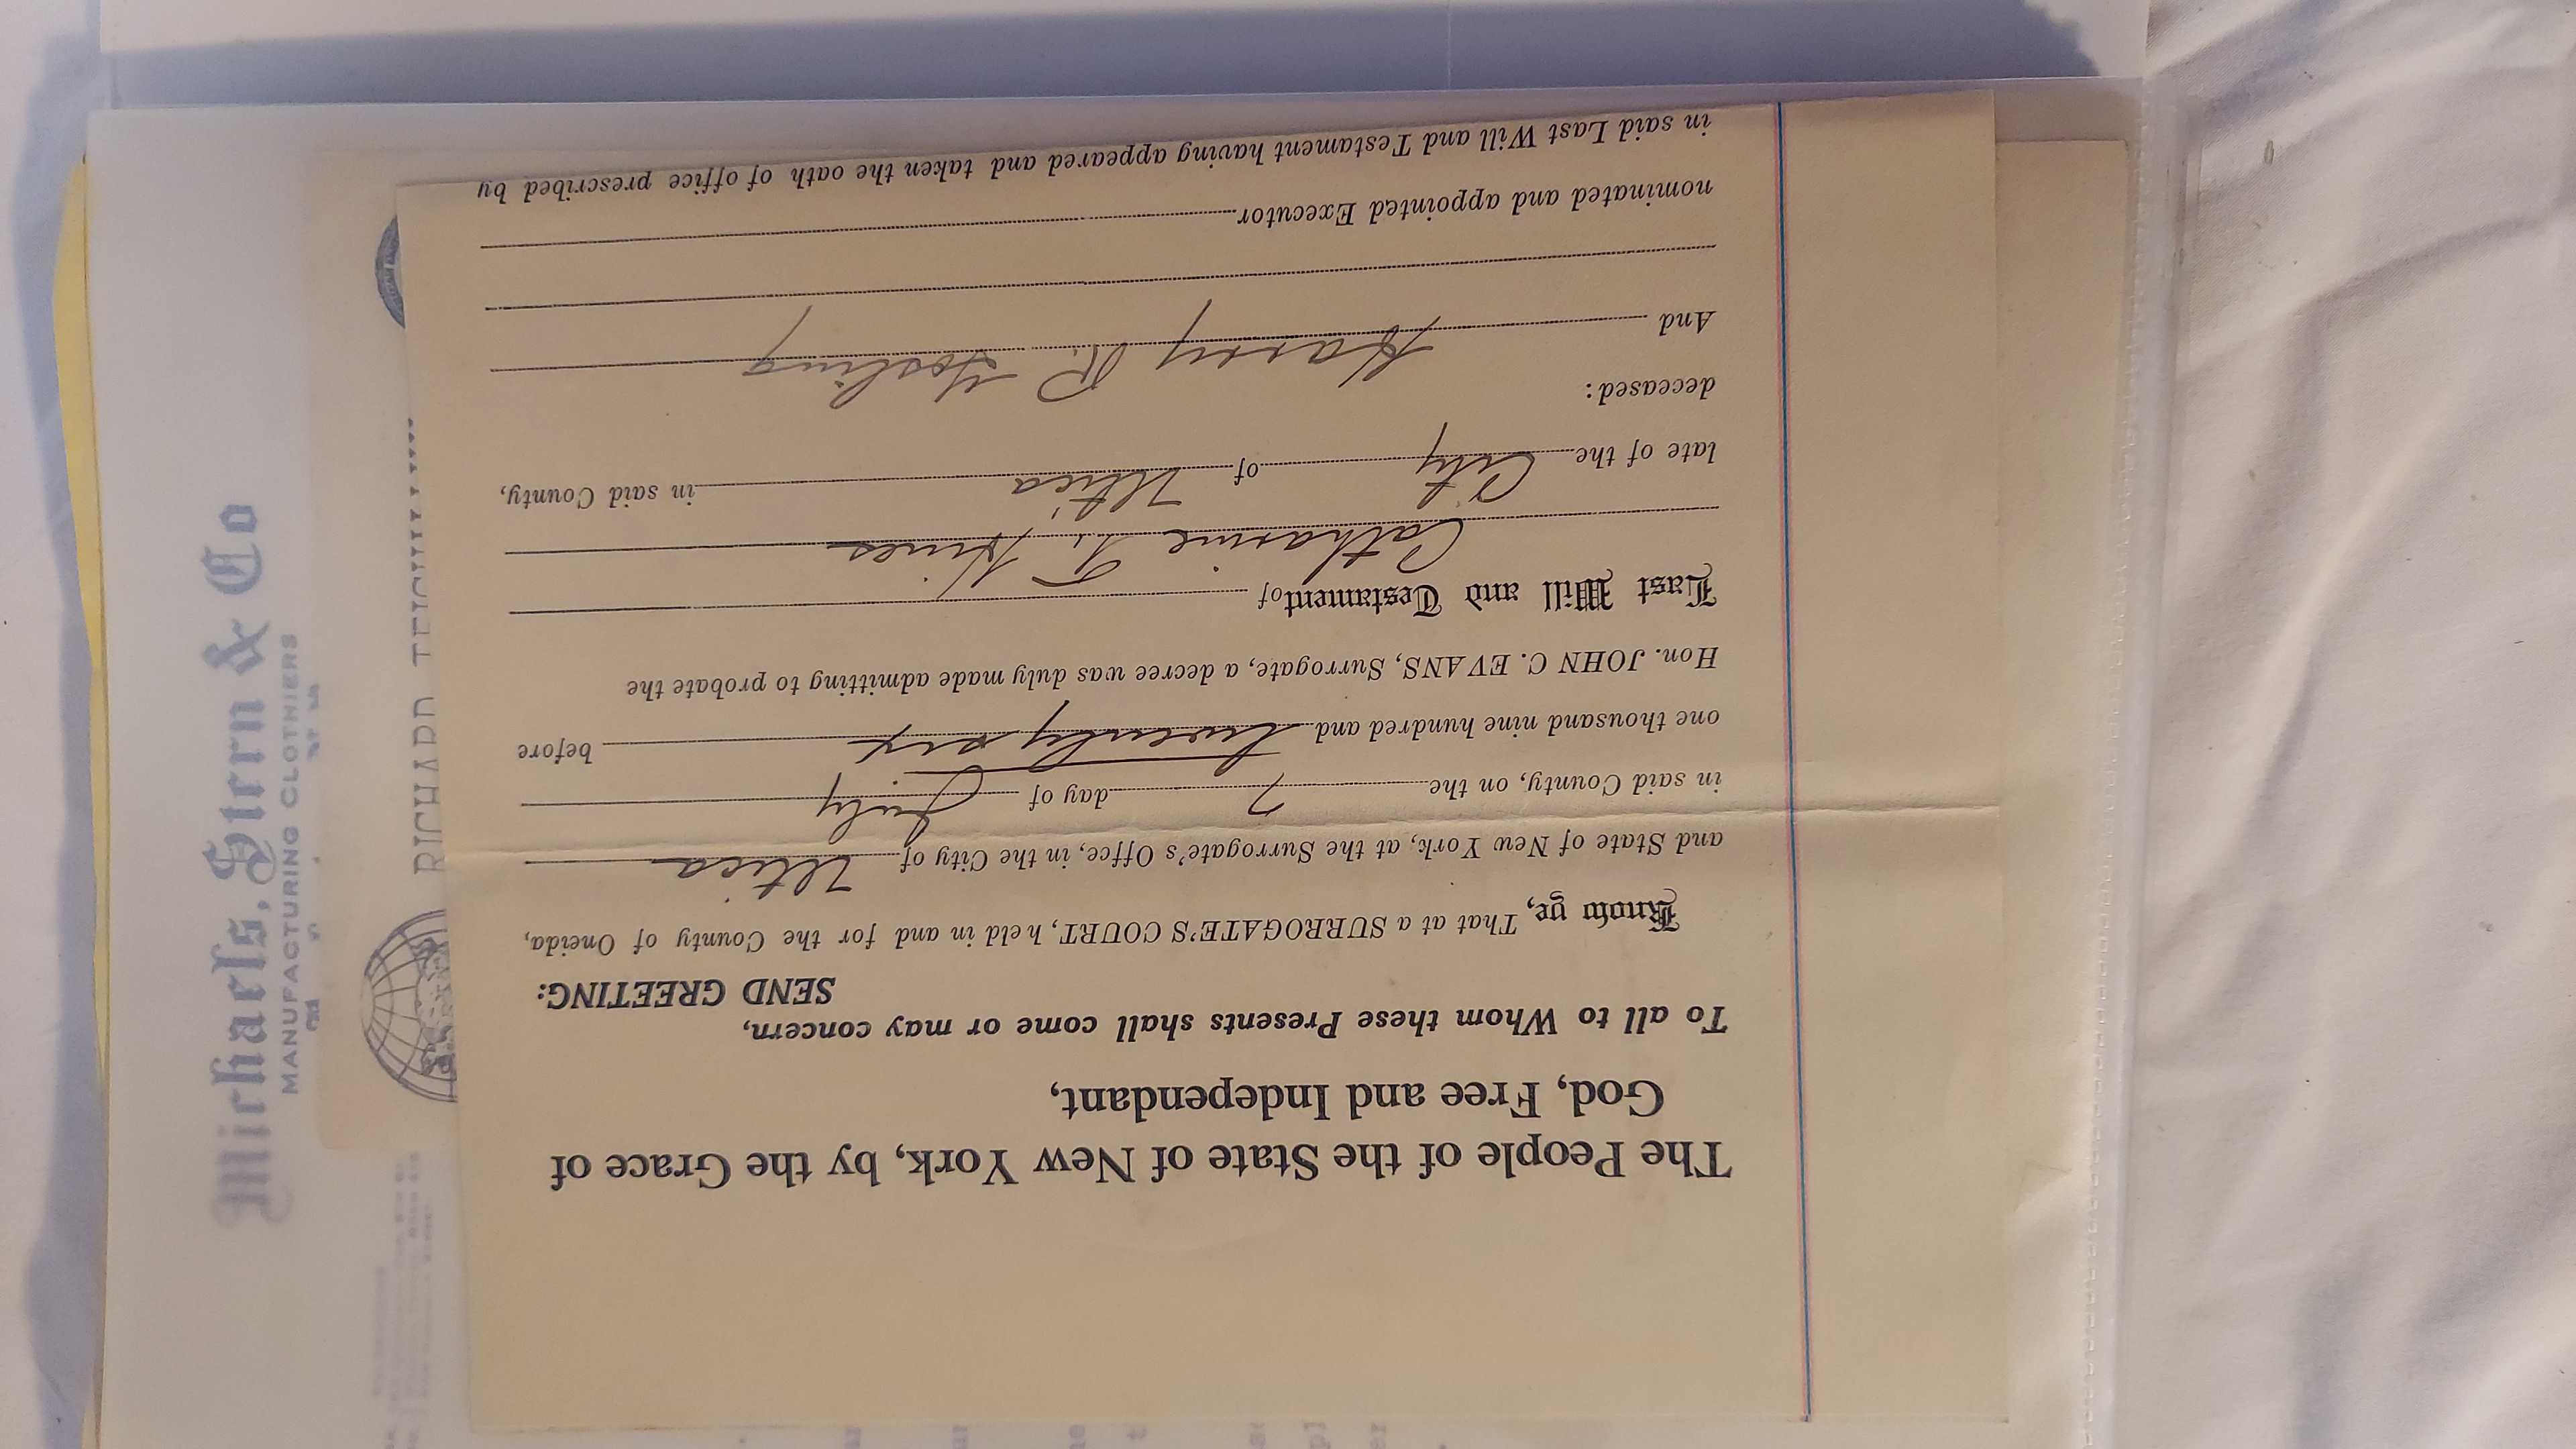 The People of the State of New York, by the Grace of
God, Free and Independant,
To all to Whom these Presents shall come or may concern,
SEND GREETING:
Know ye, That at a SURROGATE'S COURT, held in and for the County of Oneida,
and State of New York, at the Surrogate's Offce, in the City of Utica
in said County, on the 7 day of July
one thousand nine hundred and twenty six before
Hon. JOHN C. EVANS, Surrogate, a decree was duly made admitting to probate the
Last Will and Testament of
Catharine T. Hines
late of the City of Utica in said County,
deceased:
And Harry R. Gosling
nominated and appointed Executor
in said Last Will and Testament having appeared and taken the oath of office prescribed by
Michaels, Stern & Co
MANUFACTURING CLOTHIERS
RICHARD